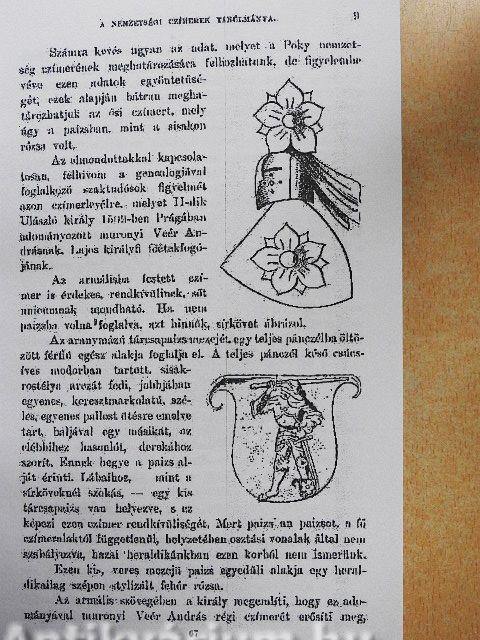 A NEMZETSÉGI CZÍMEREK TAGLALMÁNYA. 9
Számra kevés ugyan az adat, melyet a Poky nemzet-
ség czímerének meghatározására felhozhatunk, de figyelembe
véve ezen adatok egyöntetűsé-
gét, ezek alapján bátran megha-
tározhatjuk az ősi czímert, mely
úgy a paizsban, mint a sisakon
rózsa volt.
Az elmondottakkal kapcsola-
tosan, felhívom a genealogiával
foglalkozó szaktudósok figyelmét
azon czímerlevélre, melyet II-dik
Ulászló király 1502-ben Prágában
adományozott muronyi Veér An-
drásnak, Lajos királyfi főétekfogó-
jának.
Az armálisba festett czí-
mer is érdekes, rendkívülinek, sőt
unicumnak mondható. Ha nem
paizsba volna foglalva, azt hinnők, sírkövet ábrázol.
Az aranymázú tárcsapaizs mezejét egy teljes pánczélba öltö-
zött férfiú egész alakja foglalja el. A teljes pánczél késő csúcs-
íves modorban tartott, sisak-
rostélya arczát fedi, jobbjában
egyenes, keresztmarkolatú, szé-
les, egyenes pallost ütésre emelve
tart, baljával egy másikat, az
előbbihez hasonlót, derekához
szorít. Ennek hegye a paizs al-
ját érinti. Lábaihoz, mint a
sírköveknél szokás, — egy kis
tárcsapaizs van helyezve, s ez
képezi ezen czímer rendkívüliségét. Mert paizs an paizsot, a fő
czímeralaktól függetlenül, helyzetében osztási vonalak által nem
szabályozva, hazai heraldikánkban ezen korból nem ismerünk.
Ezen kis, veres mezejű paizs egyedüli alakja egy heral-
dikailag szépen stylizált fehér rózsa.
Az armális szövegében a király megemlíti, hogy ez ado-
mányával muronyi Veér András régi czímerét erősíti meg,
67